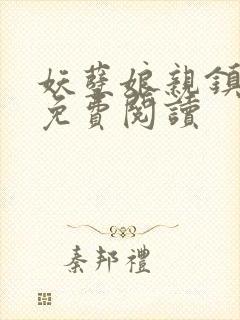 妖孽娘親鎮
免費閱讀
秦邦禮